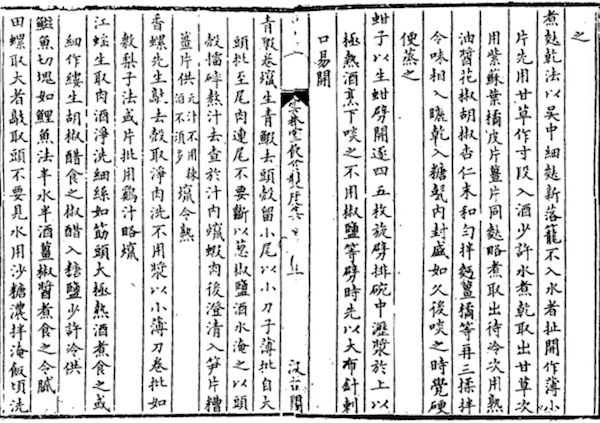 之
煮麩乾法以吳中細麩新落籠不入水者扯開作薄小
片先用甘草作寸段入酒少許水煮乾取出甘草次
用紫蘇葉橘皮片薑片同麩略煮取出待冷次用熟
油醬花椒胡椒杏仁末和勻拌麵薑橘等再三揉拌
令味相入曬乾入糖甏內封盛如久後啖之時覺硬
便蒸之
蚶子以生蚶劈開逐四五枚旋劈排碗中瀝漿於上以
極熱酒烹下啖之不用椒鹽等劈時先以大布針刺
口易開
雲林堂飲食制度集
汲古閣
青鰕卷爊生青鰕去頭殼留小尾以小刀子薄批自大
頭批至尾肉連尾不要斷以蔥椒鹽酒水淹之以頭
殼擂碎熬汁去查於汁內爊蝦肉後澄清入笋片糟
薑片供元汁不用辣酒不須多爊令熱
香螺先生敲去殼取淨肉洗不用漿以小薄刀卷批如
敷梨子法或片批用鷄汁略爊
江𧎴生取肉酒淨洗細絲如筯頭大極熱酒煮食之或
細作縷生胡椒醋食之椒醋入糖鹽少許冷供
魚切塊如鯉魚法半水半酒薑椒醬煮食之令膩
田螺取大者敲取頭不要見水用沙糖濃拌淹飯頃洗